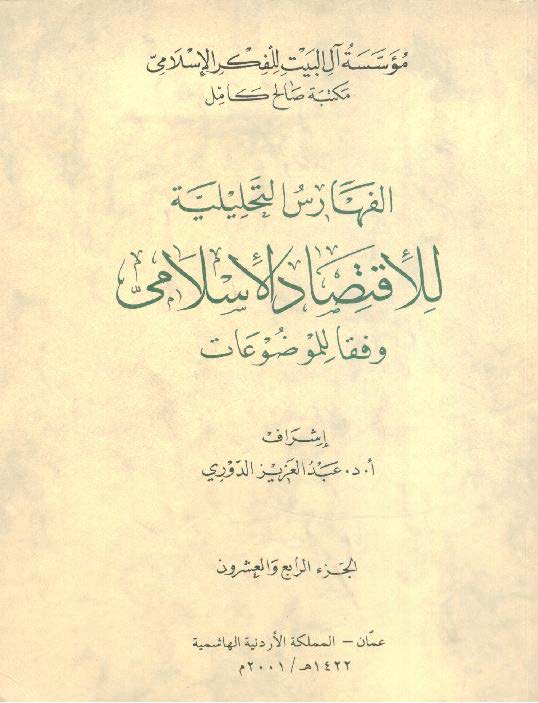 مؤسسة آل البيت للفكر الإسلامي
مكتبة صالح كامل
الفهارس التحليلية
للاقتصاد الإسلامي
وفقا للموضوعات
إشراف
أ.د. عبد العزيز الدوري
الجزء الرابع والعشرون
عمّان – المملكة الأردنية الهاشمية
١٤٢٢هـ/٢٠٠١م